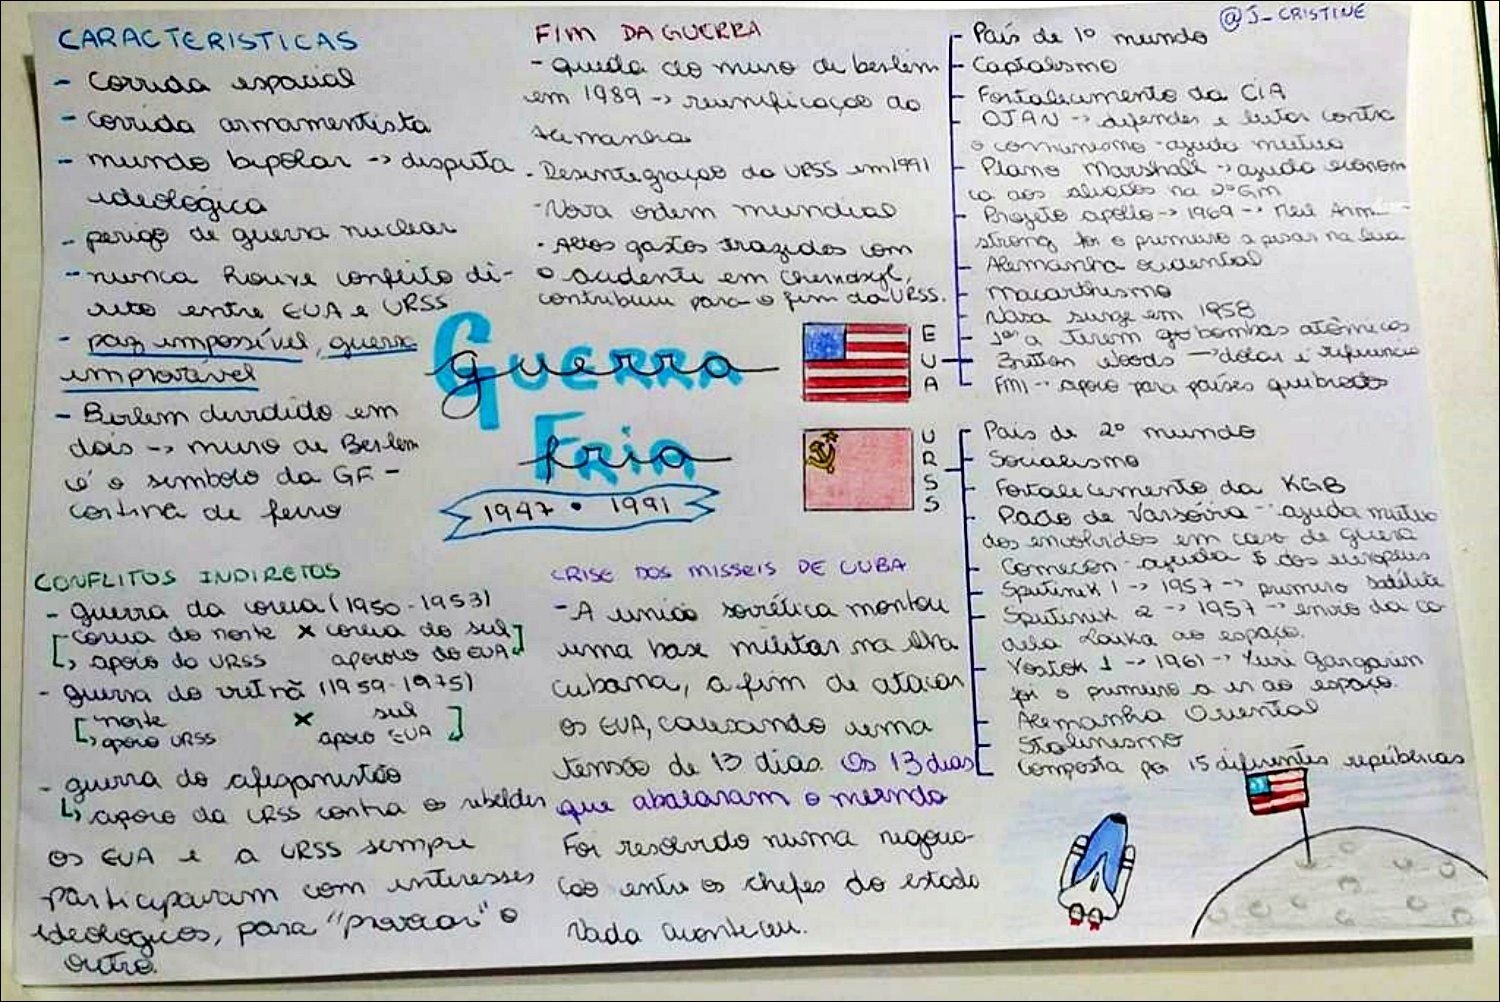 CARACTERISTICAS
- Corrida espacial
- corrida armamentista
- mundo bipolar -> disputa
ideológica
- perigo de guerra nuclear
- nunca houve conflito di-
reto entre EUA e URSS
- paz impossível, guerra
improvável
- Berlem dividido em
dois -> muro de Berlem
é o simbolo da GF -
cortina de ferro
FIM DA GUERRA
- queda do muro de berlem
em 1989 -> reunificação da
Alemanha
- Desintegração da URSS em 1991
- Nova ordem mundial
- Altos gastos trazidos com
o acidente em Chernobyl,
contribuiu para o fim da URSS.
Guerra
guerra
Fria
fria
1947 • 1991
@J_CRISTINE
EUA
- País de 1º mundo
- Capitalismo
- Fortalecimento da CIA
- OTAN -> defender e lutar contra
o comunismo - ajuda mutua
- Plano Marshall -> ajuda econom
ica aos aliados na 2ºGM
- Projeto apollo -> 1969 -> Neil Arm-
strong foi o primeiro a pisar na lua
- Alemanha ocidental
- Macarthismo
- Nasa surge em 1958
- 1ºs a terem bombas atômicas
- Bretton woods -> dolar é referencia
- FMI -> apoio para países quebrados
URSS
- País de 2º mundo
- Socialismo
- Fortalecimento da KGB
- Pacto de Varsóvia - ajuda mutua
dos envolvidos em caso de guerra
- Comecon - ajuda $ dos europeus
- Sputinik 1 -> 1957 -> primeiro satélite
- Sputinik 2 -> 1957 -> envio da ca
dela Laika ao espaço.
- Vostok 1 -> 1961 -> Yuri Gargarin
foi o primeiro a ir ao espaço.
- Alemanha Oriental
- Stalinismo
- Composta por 15 diferentes repúblicas
CONFLITOS INDIRETOS
- guerra da coreia (1950-1953)
[coreia do norte x coreia do sul]
apoio da URSS apoio do EUA
- guerra do vietnã (1959-1975)
norte x sul
apoio URSS apoio EUA
- guerra do afeganistão
apoio da URSS contra os rebeldes
os EUA e a URSS sempre
participavam com interesses
ideológicos, para "provocar" o
outro.
CRISE DOS MISSEIS DE CUBA
- A união soviética montou
uma base militar na ilha
cubana, a fim de atacar
os EUA, causando uma
tensão de 13 dias. Os 13 dias
que abalaram o mundo
Foi resolvido numa negocia-
ção entre os chefes do estado
Nada aconteceu.